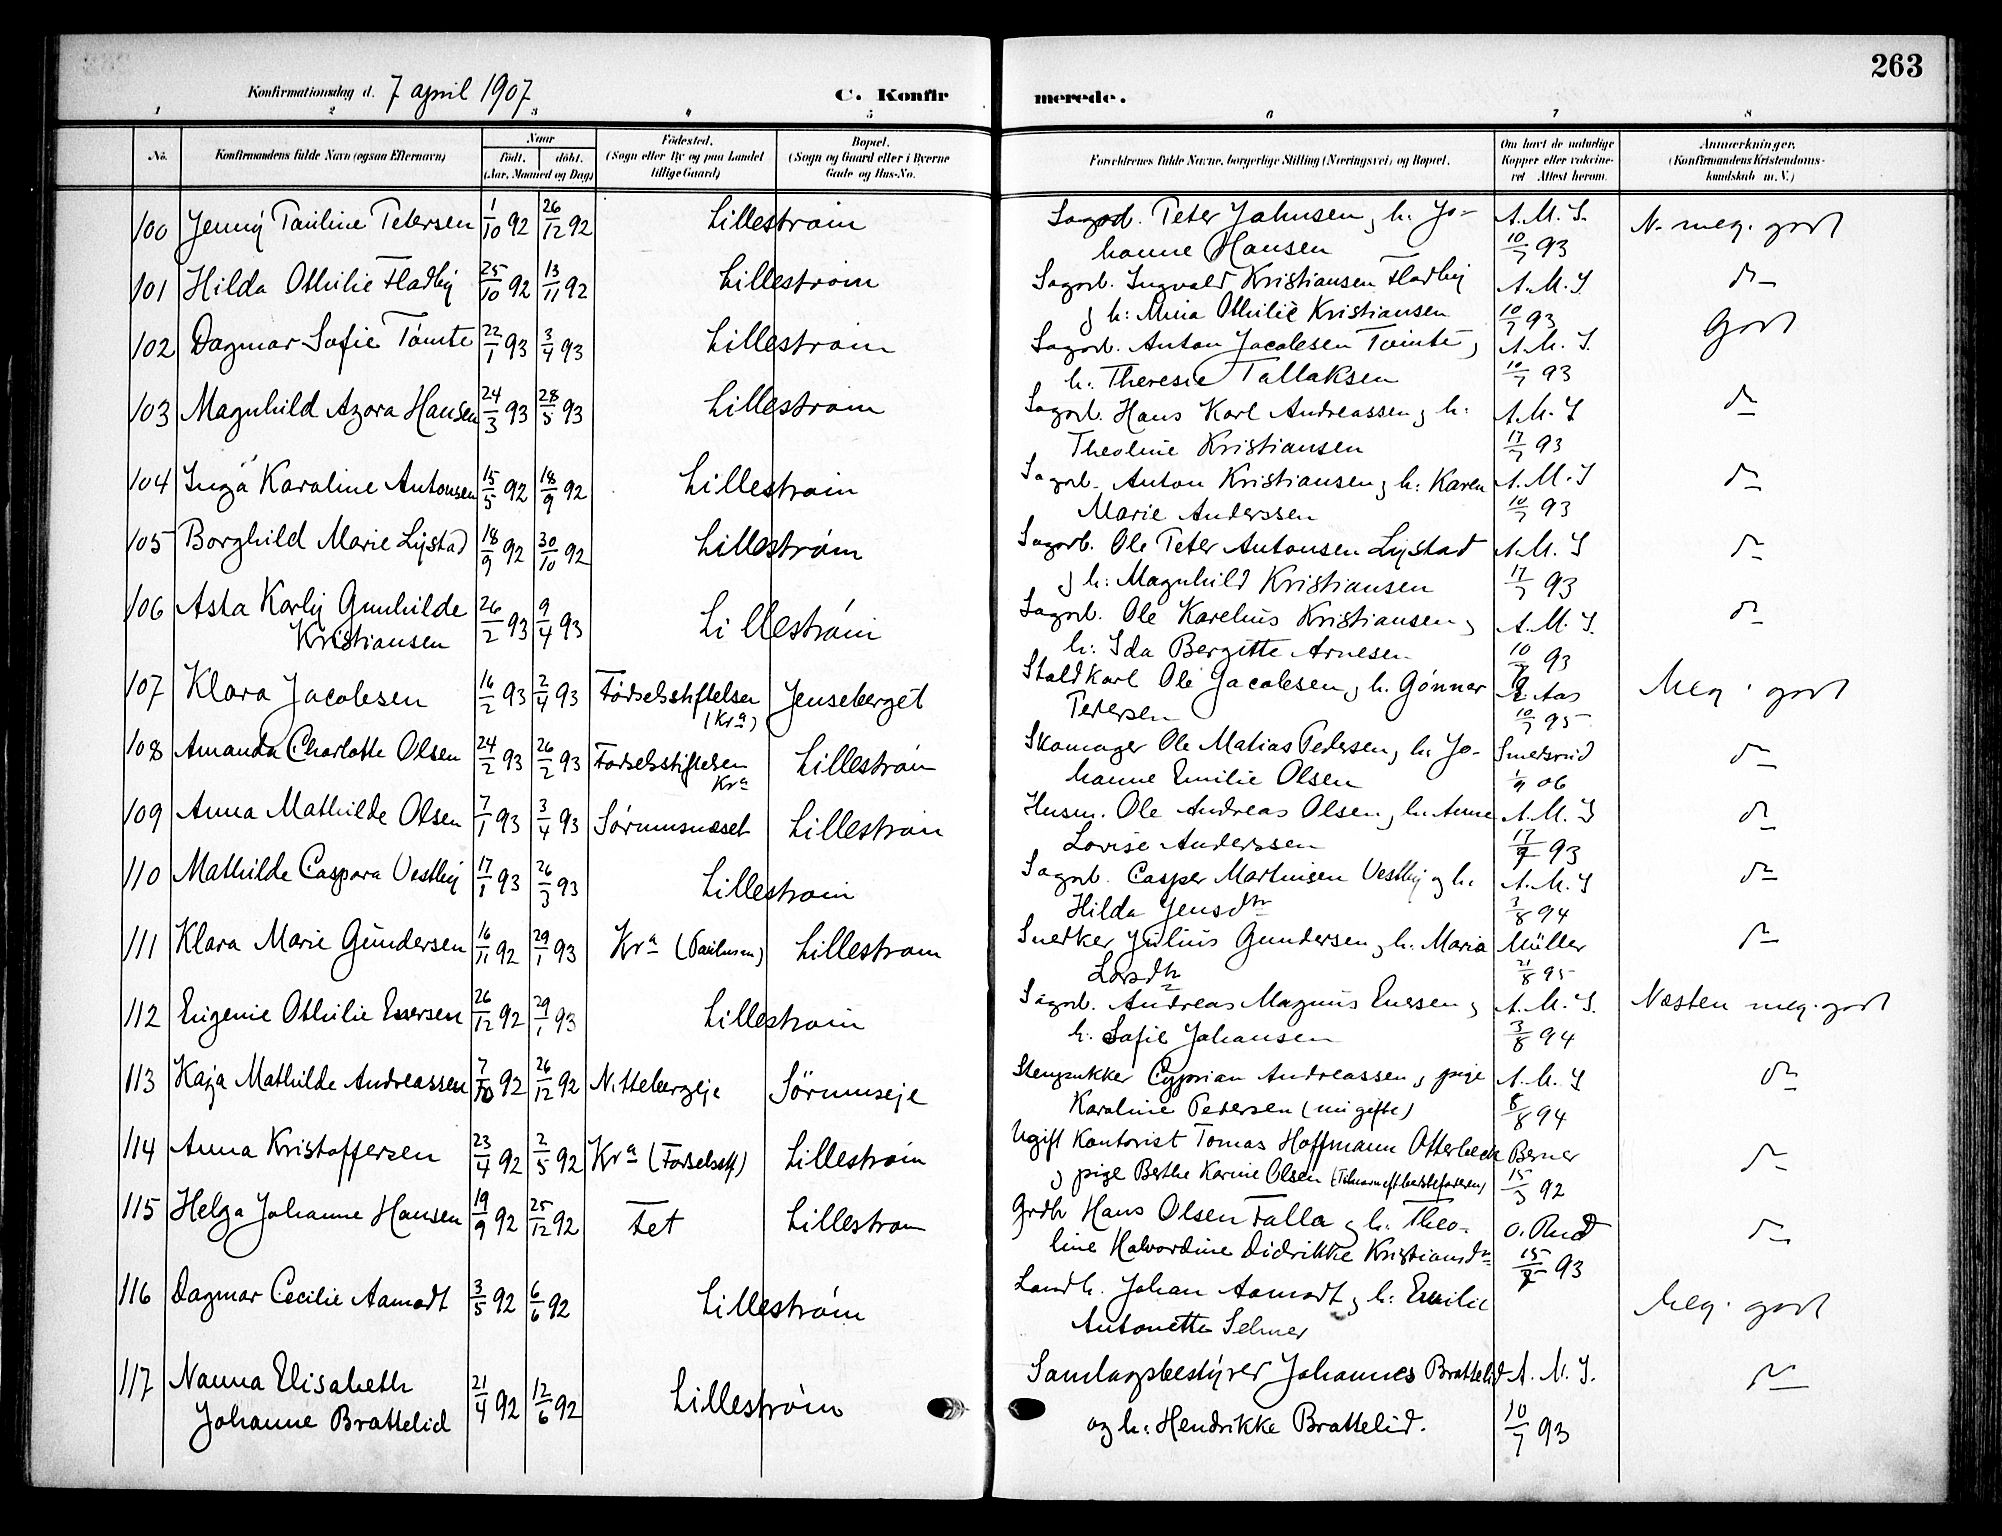 263
Konfirmationsdag d. 7 april 1907
C. Konfirmerede.
1 2 3 4 5 6 7 8
No. Konfirmandens fulde Navn (ogsaa Efternavn) Naar født. døbt. (Aar, Maaned og Dag) Fødested. (Sogn eller By og paa Landet tillige Gaard) Bopæl. (Sogn og Gaard eller i Byerne Gade og Hus-No. Forældrenes fulde Navne, borgerlige Stilling (Næringsvei) og Bopæl. Om havt de naturlige Kopper eller vakcineret Attest herom. Anmerkninger. (Konfirmandens Kristendomskundskab m. V.)
100 Jenny Pauline Petersen 1/10 92 26/12 92 Lillestrøm Sagarb. Peter Johnsen og h. Jo- A.M.S.
hanne Hansen 10/7 93 N. meg. godt
101 Hilda Othilie Fladby 25/10 92 13/11 92 Lillestrøm Sagarb. Ingvald Kristiansen Fladby A.M.S
og h: Mina Othilie Kristiansen 10/7 93 do
102 Dagmar Sofie Tømte 22/1 93 3/4 93 Lillestrøm Sagarb. Anton Jacobsen Tømte og A.M.S.
h. Theresie Tallaksen 10/7 93 Godt
103 Magnhild Azora Hansen 24/3 93 28/5 93 Lillestrøm Sagarb. Hans Karl Andreassen og h: A.M.S
Theoline Kristiansen 17/7 93 do
104 Inga Karoline Antonsen 15/5 92 18/9 92 Lillestrøm Sagarb. Anton Kristiansen og h: Karen A.M.S
Marie Anderssen 10/7 93 do
105 Borghild Marie Lystad 18/9 92 30/10 92 Lillestrøm Sagarb. Ole Peter Antonsen Lystad A.M.S
og h: Magnhild Kristiansen 17/7 93 do
106 Asta Karly Gunhilde 26/2 93 9/4 93 Lillestrøm Sagarb. Ole Karelius Kristiansen og A.M.S.
Kristiansen h: Ida Bergitte Arnesen 10/7 93 do
107 Klara Jacobsen 16/2 93 2/4 93 Fødselsstiftelsen (Kra) Jenseberget Staldkarl Ole Jacobsen og h. Gønner Aas
Pedersen 10/7 95 Meg. godt
108 Amanda Charlotte Olsen 24/2 93 26/2 93 Fødselsstiftelsen Kra Lillestrøm Skomager Ole Matias Pedersen og h. Jo- Smedsrud
hanne Emilie Olsen 06 do
109 Anna Mathilde Olsen 7/1 93 3/4 93 Sørumsnæset Lillestrøm Husm. Ole Andreas Olsen og h. Anne A.M.S
Lovise Anderssen 17/7 93 do
110 Mathilde Caspara Vestby 17/1 93 26/3 93 Lillestrøm Sagarb. Casper Martinsen Vestby og h. A.M.S
Hilda Jensdtr 3/8 94 do
111 Klara Marie Gundersen 16/11 92 29/1 93 Kra (Paulusm) Lillestrøm Snedker Julius Gundersen og h. Maria Müller
Larsdtr 21/8 95 do
112 Eugenie Othilie Enersen 26/12 92 29/1 93 Lillestrøm Sagarb. Andreas Magnus Enersen og A.M.S.
h. Sofie Johansen 3/8 94 Næsten meg. godt
113 Kaja Mathilde Andreassen 7/10 92 26/12 92 Nittebergeje Sørumseje Stenpukker Cyprian Andreassen og pige A.M.S
Karoline Petersen (nu gifte) 8/8 94 do
114 Anna Kristoffersen 23/4 92 2/5 92 Kra (Fødselsst) Lillestrøm Ugift Kontorist Tomas Hoffmann Otterbeck Berner
og pige Berthe Karine Olsen 15/3 92 do
115 Helga Johanne Hansen 19/9 92 25/12 92 Fet Lillestrøm Grdbr Hans Olsen Falla og h. Theo- O. Rud
line Halvordine Didrikke Kristiansdtr 93 do
116 Dagmar Cecilie Aamodt 3/5 92 6/6 92 Lillestrøm Landh. Johan Aamodt og h: Emilie
Antonette Selmer Meg. godt
117 Nanna Elisabeth 21/4 92 12/6 92 Lillestrøm Samlagsbestyrer Johannes Brattelid A.M.S.
Johanne Brattelid og h: Hendrikke Brattelid. 10/7 93 do